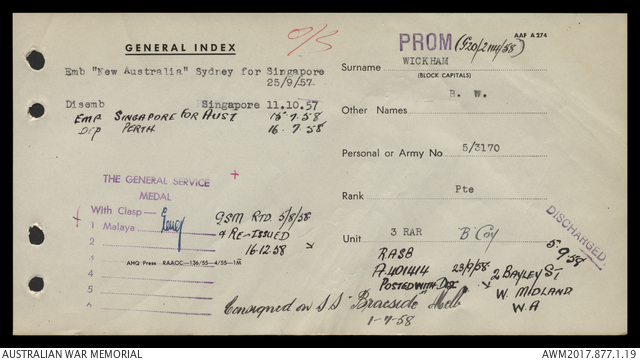 GENERAL INDEX
O/S
PROM (G20/2 my/58)
AAF A 274
Emb "New Australia" Sydney for Singapore
25/9/57.
Disemb Singapore 11.10.57
Emp SINGAPORE FOR AUST 15.7.58
Dep PERTH 16.7.58
Surname WICKHAM
(BLOCK CAPITALS)
Other Names B. W.
Personal or Army No 5/3170
Rank Pte
Unit 3 RAR B Coy
THE GENERAL SERVICE
MEDAL
With Clasp—
1 Malaya
2
3
4
5
6
AHQ Press RAAOC—136/55—4/55—1M
GSM RTD 5/8/58
& RE-ISSUED
16.12.58
RASB
A.401414 29/9/58
POSTED WITH
DISCHARGED
5.9.58
2 BAYLEY ST
W. MIDLAND
W.A
Consigned on S.S "Braeside" Melb
1-7-58
AUSTRALIAN WAR MEMORIAL
AWM2017.877.1.19